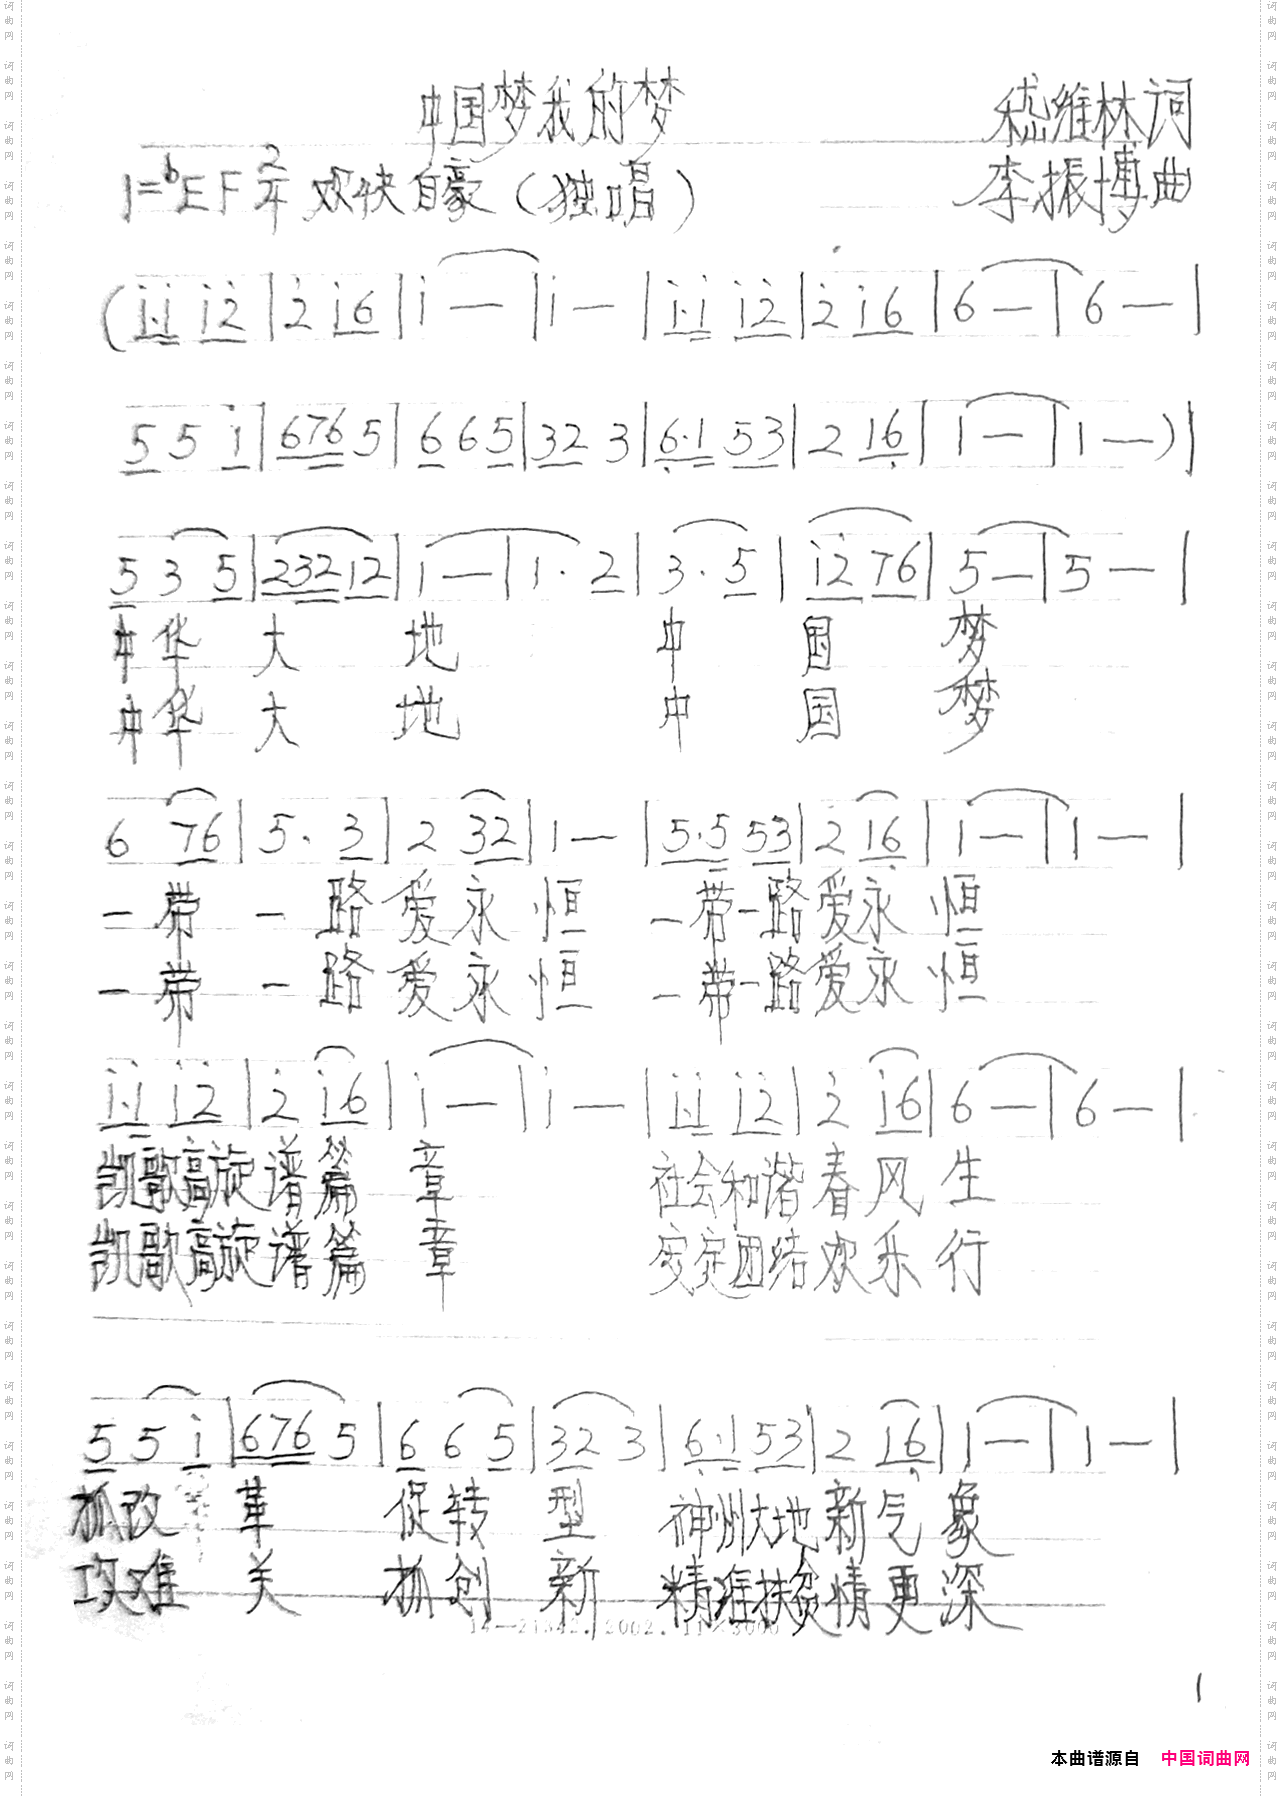 中国梦我的梦
嵇维林词
1=bE F 2/4 欢快自豪（独唱）
李振博曲
(i·i i2 | 2 i6 | i — | i — | i·i i2 | 2 i6 | 6 — | 6 — |
5 5 i | 676 5 | 6 6 5 | 32 3 | 6·1 53 | 2 16 | 1 — | 1 — ) |
5 3 5 | 232 12 | 1 — | 1· 2 | 3· 5 | i2 76 | 5 — | 5 — |
中华大地 中国梦
中华大地 中国梦
6 76 | 5· 3 | 2 32 | 1 — | 5·5 53 | 2 16 | 1 — | 1 — |
一带一路爱永恒 一带一路爱永恒
一带一路爱永恒 一带一路爱永恒
i·i i2 | 2 i6 | i — | i — | i·i i2 | 2 i6 | 6 — | 6 — |
凯歌高旋谱篇章 社会和谐春风生
凯歌高旋谱篇章 安定团结欢乐行
5 5 i | 676 5 | 6 6 5 | 32 3 | 6·1 53 | 2 16 | 1 — | 1 — |
抓改革 促转型 神州大地新气象
攻难关 抓创新 精准扶贫情更深
1
本曲谱源自 中国词曲网